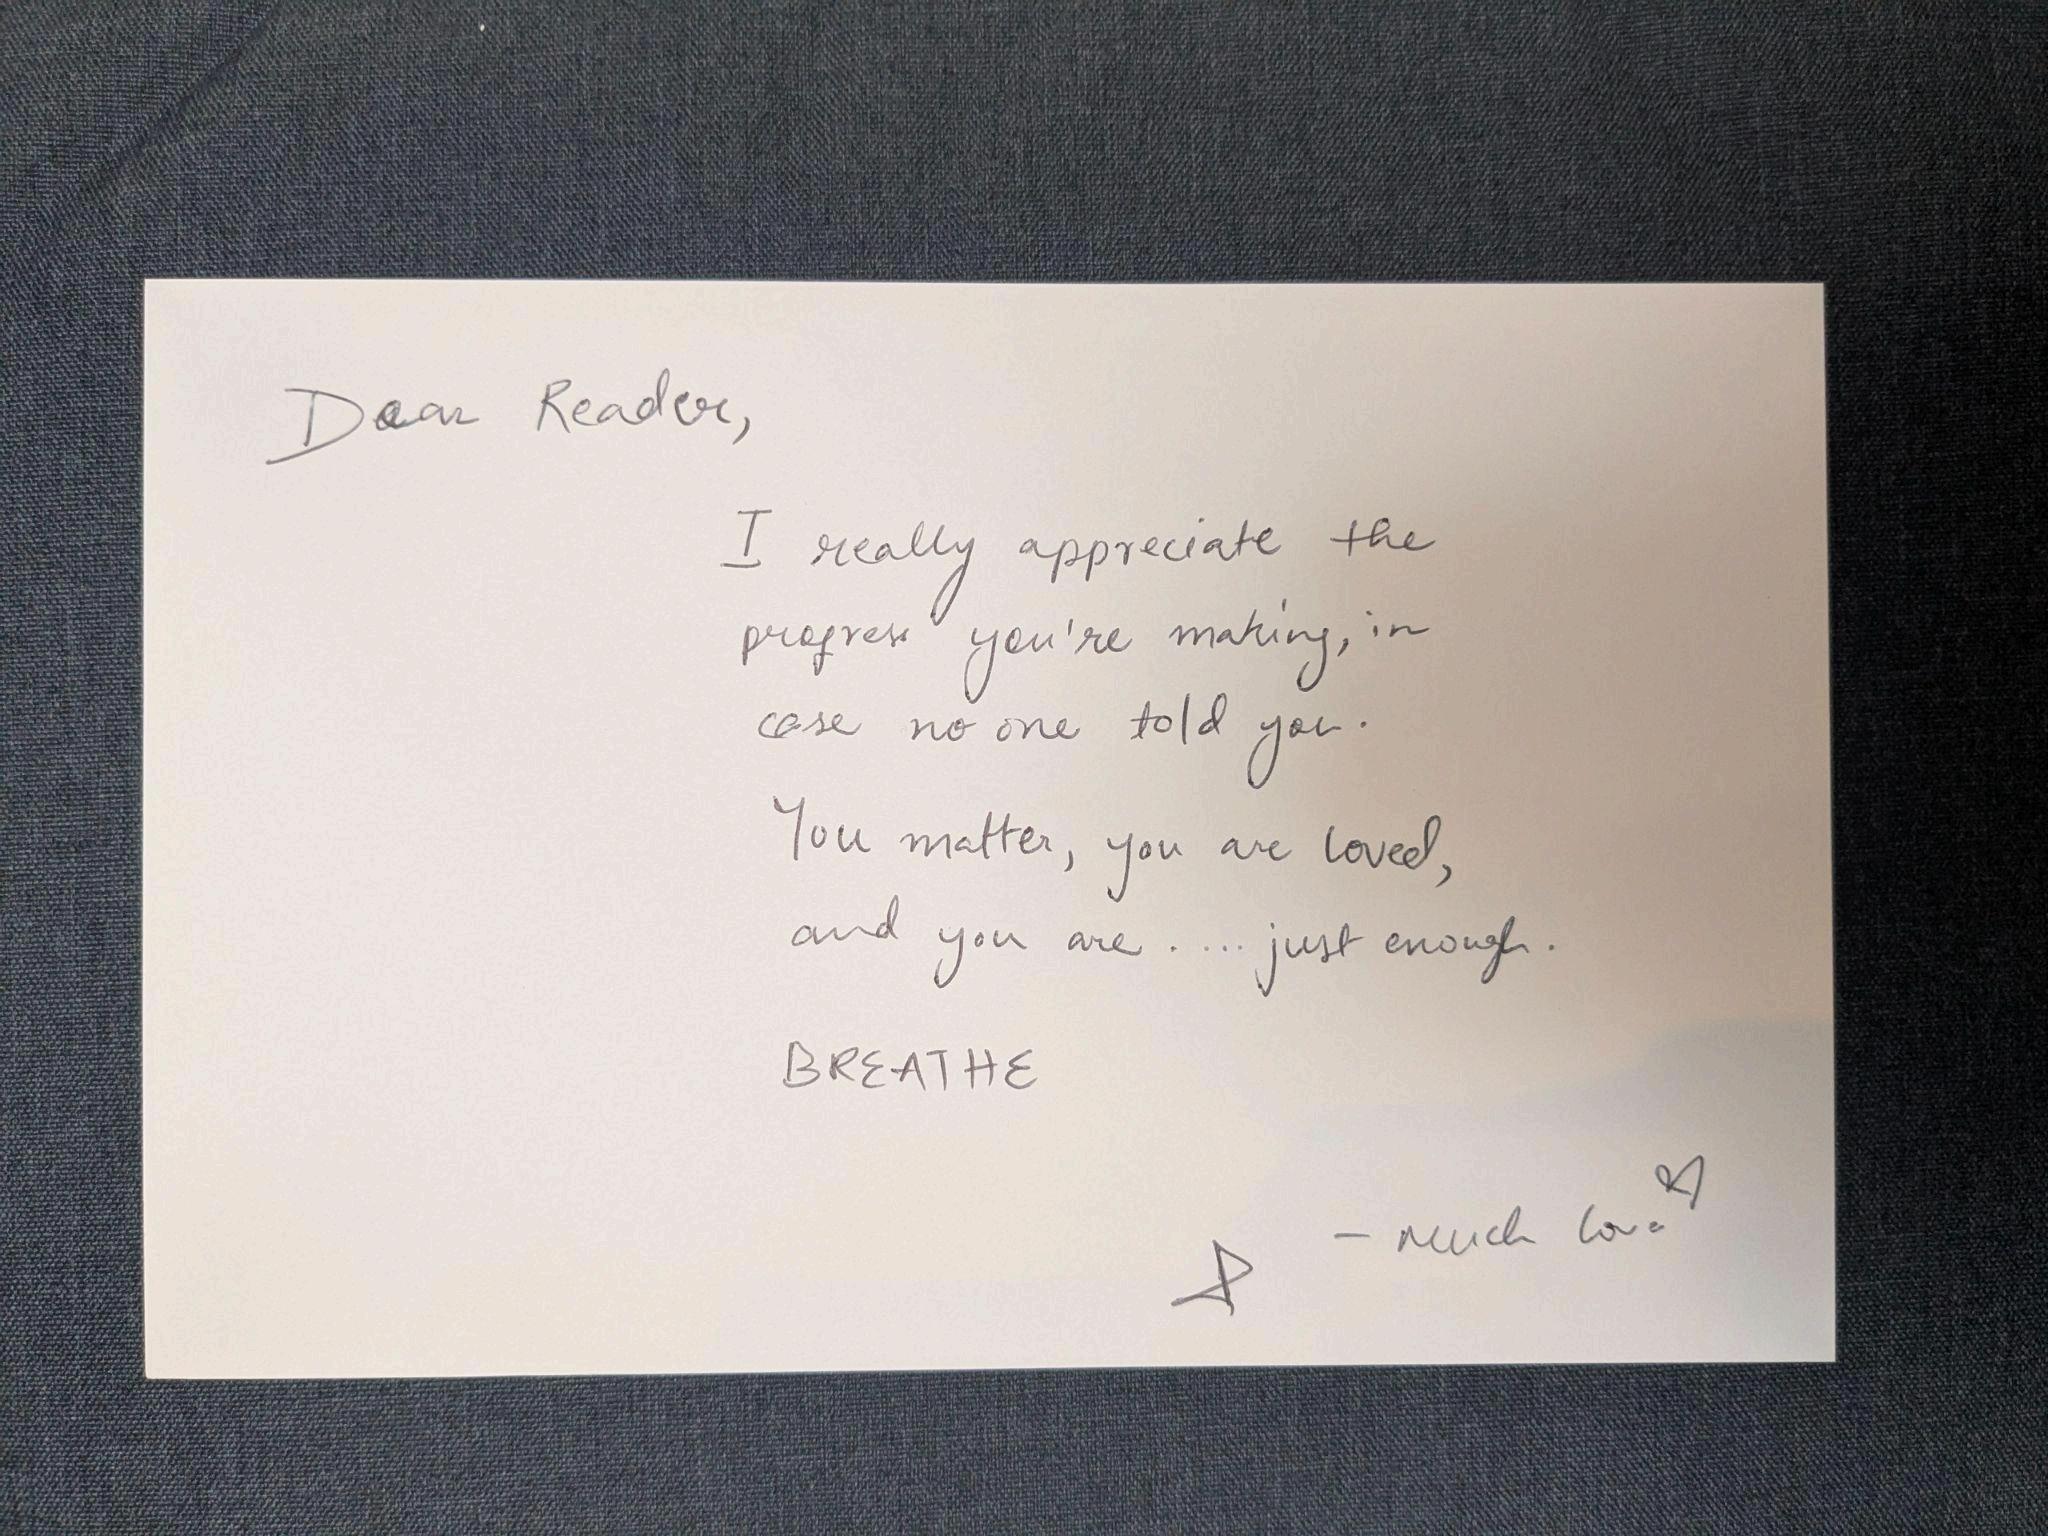 Dear Reader,
I really appreciate the
progress you're making, in
case no one told you.
You matter, you are loved,
and you are ..... just enough.
BREATHE
- Much love